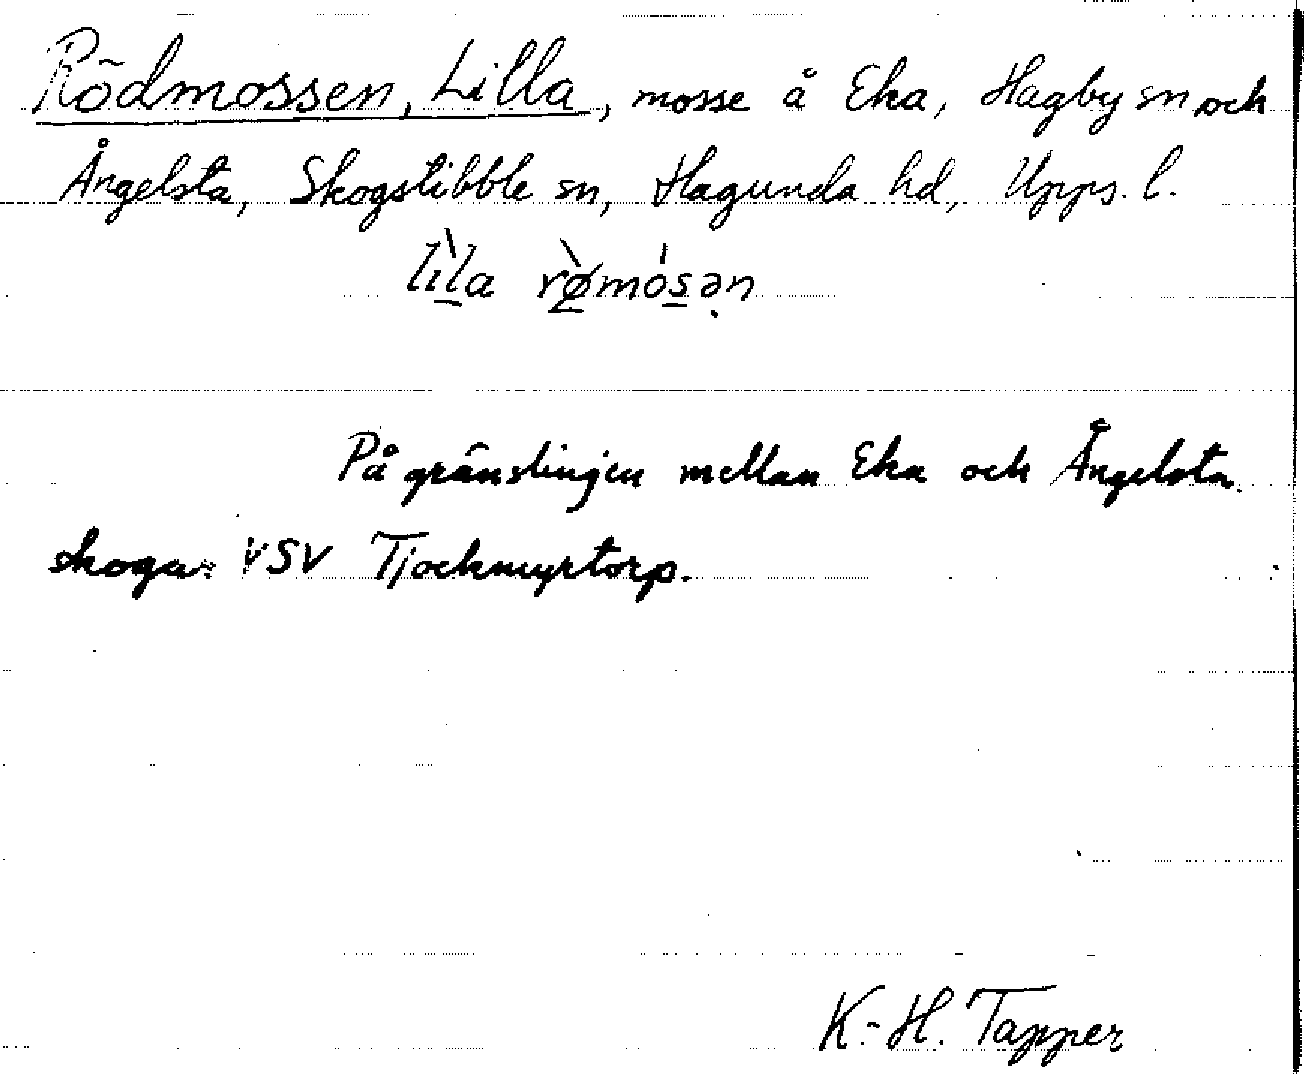 Rödmossen, Lilla, mosse å Eka, Hagby sn och
Ångelsta, Skogstibble sn, Hagunda hd, Upps. l.
lìla rø̀mósən
På gränslinjen mellan Eka och Ångelsta
skogar VSV Tjockmyrtorp.
K.-H. Tapper